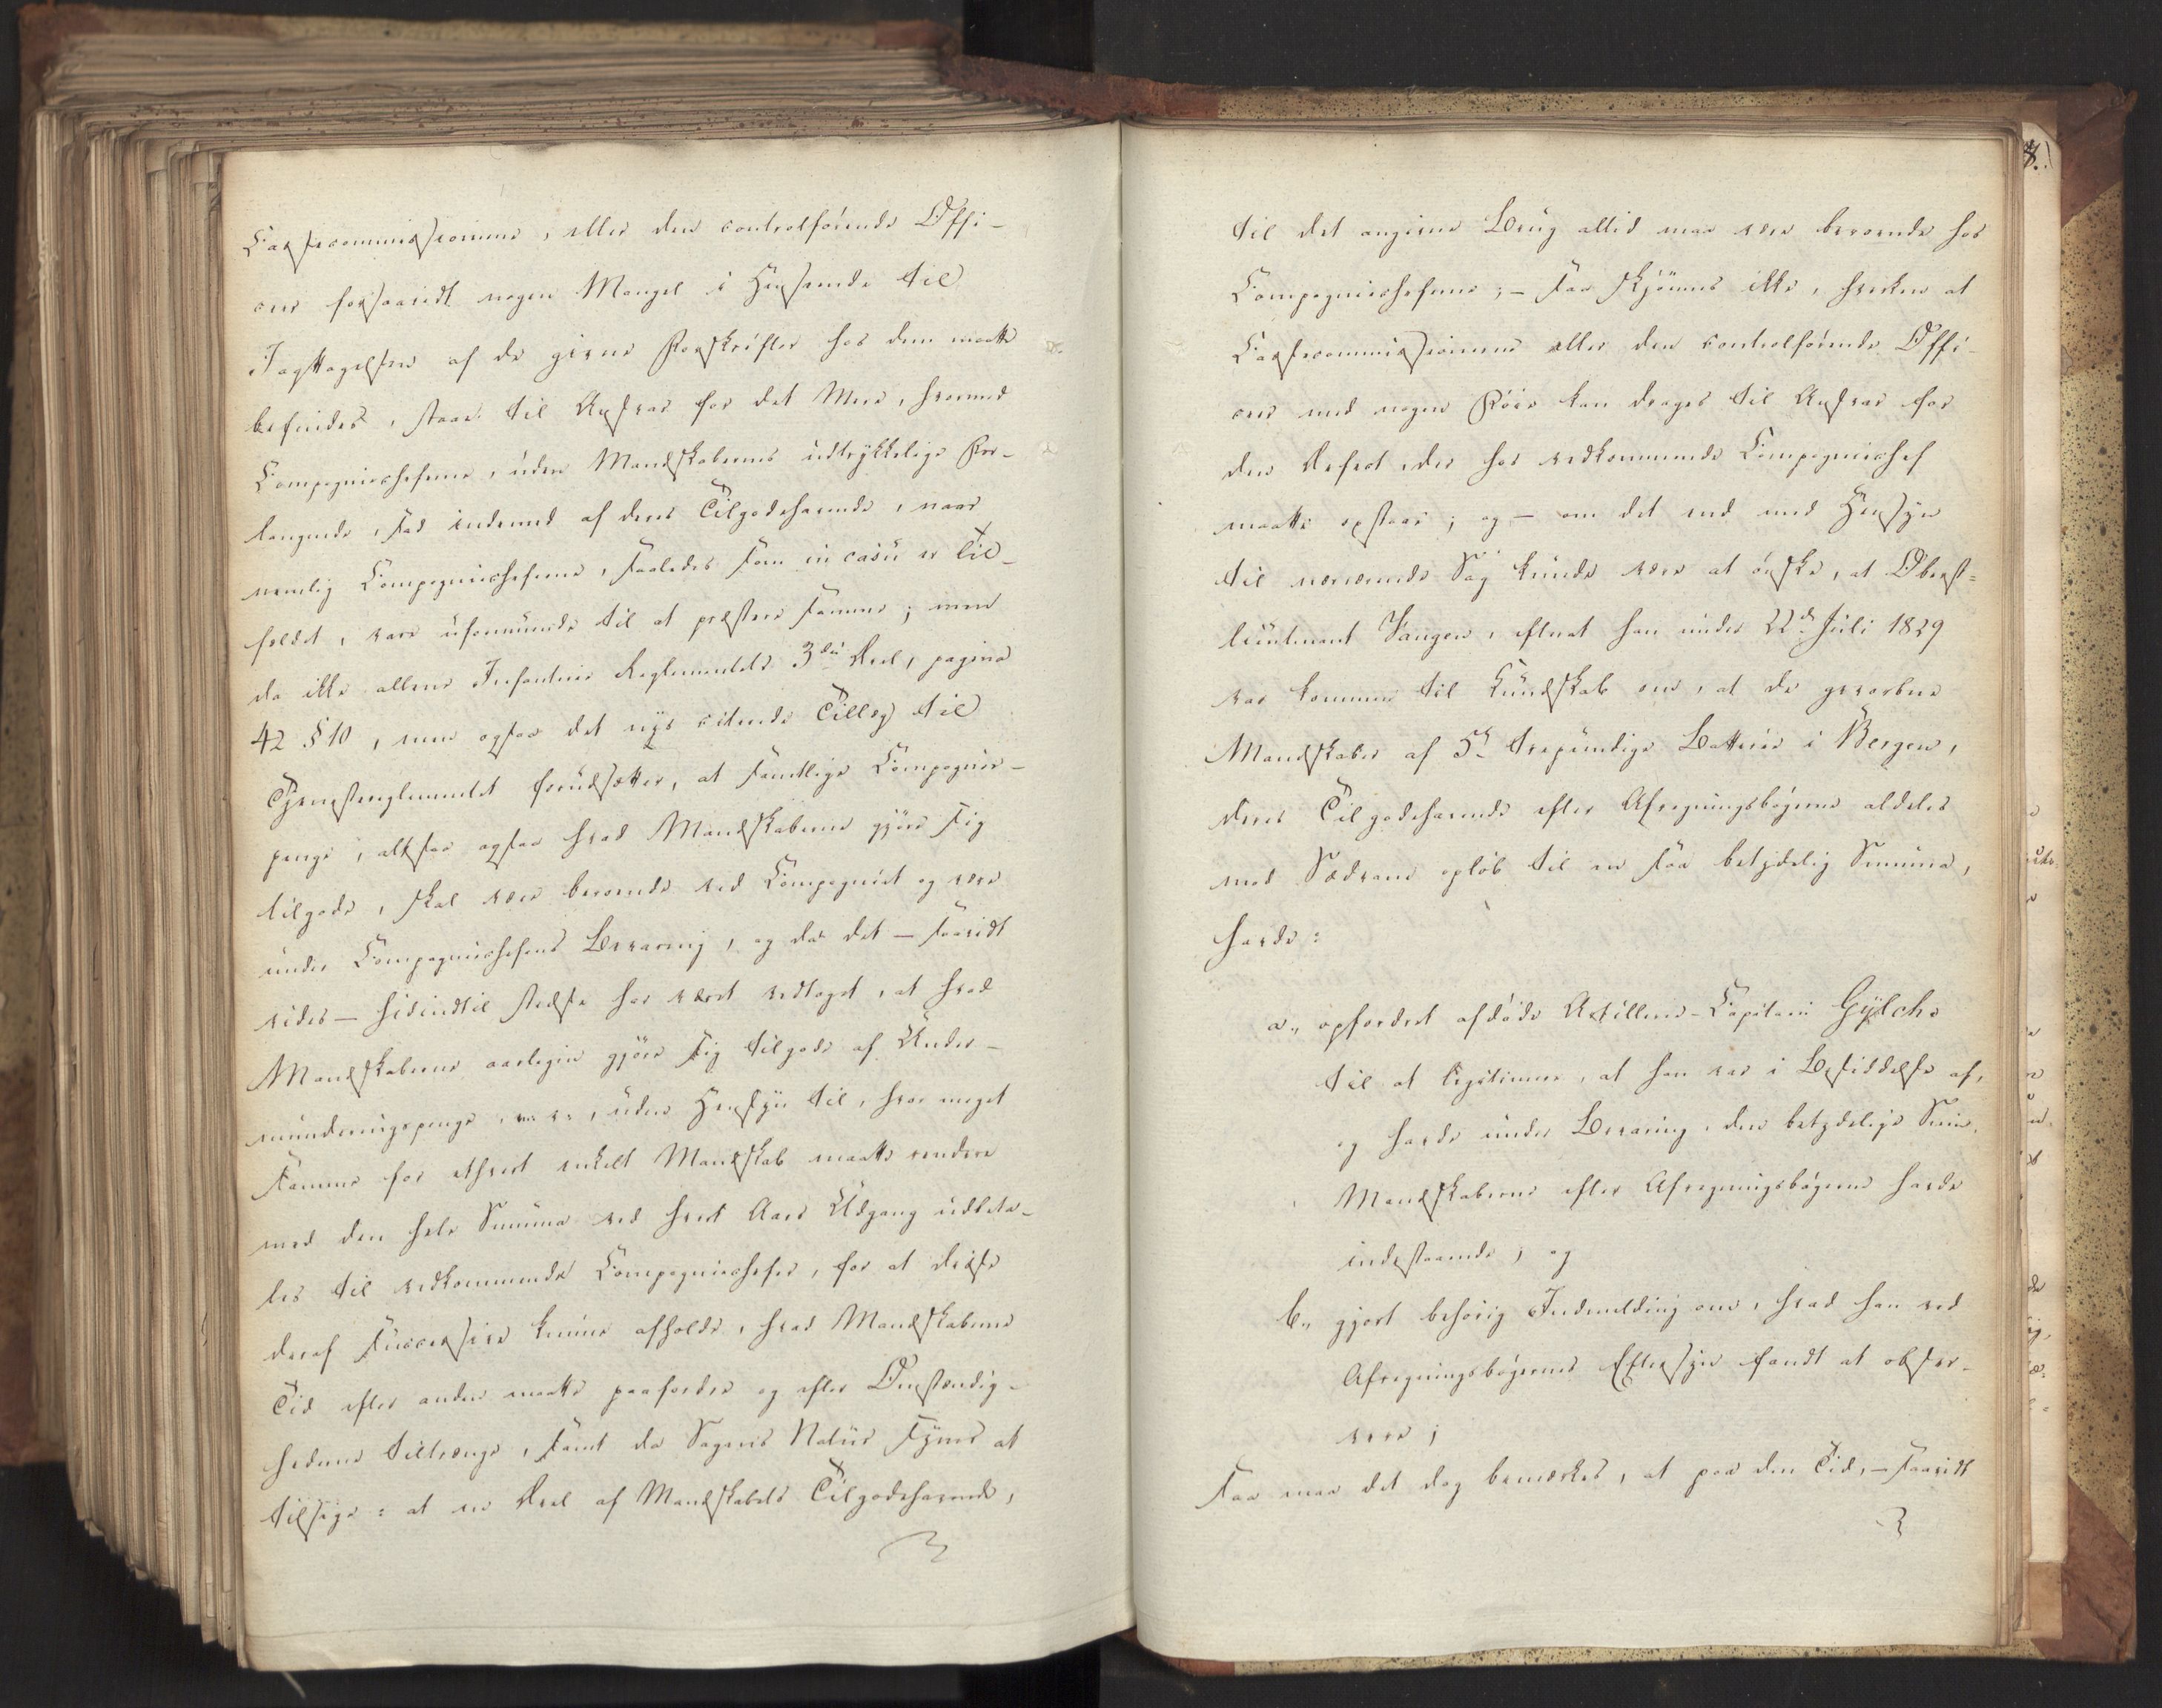 Cassecommissionerne, eller den controlförende Offi-
ceer forsaavidt nogen Mangel i Henseende til
Iagttagelsen af de givne Forskrifter hos dem maatte
befindes, staae til Ansvar for det Mere, hvormed
Compagniecheferne, uden Mandskabernes udtrykkelige For-
langende, sad indemed af deres Tilgodehavende, naar
nemlig Compagniecheferne, saaledes som in casu er Til-
feldet, vare uformuende til at præstere samme; men
da ikke allene Infanterie Reglementets 3die Deel, pagina
42 § 10, men ogsaa det nys citerede Tillæg til
Tjenestereglementet forudsætter, at samtlige Compagnie-
penge, altsaa ogsaa hvad Mandskaberne gjöre sig
tilgode, skal være beroende ved Compagniet og være
under Compagniechefens Bevaring, og da det – saavidt
vides – hidindtil stedse har været vedtaget, at hvad
Mandskaberne aarligen gjöre sig tilgode af Under-
munderingspenge, uden Hensyn til, hvor meget
samme for ethvert enkelt Mandskab maatte andrage
med den hele Summa ved hvert Aars Udgang udbeta-
les til vedkommende Compagniechefer, for at disse
deraf successive kunne afholde, hvad Mandskaberne
Tid efter anden maatte paafordre og efter Omstændig-
hederne tiltrænge, samt da Sagens Natur synes at
tilsige: at en Deel af Mandskabets Tilgodehavende,
til det angivne Brug altid maa være beroende hos
Compagniecheferne; – saa skjönnes ikke, hverken at
Cassecommissionerne eller den controlförende Offi-
ceer med nogen Föie kan drages til Ansvar for
den Defect, der hos vedkommende Compagniechef
maatte opstaae; og – om det end med Hensyn
til nærværende Sag kunde være at önske, at Oberst-
lieutenant Vangen, efterat han under 22de Juli 1829
var kommen til Kundskab om, at de gevorbne
Mandskaber af 5te trepundige Batterie i Bergen,
deres Tilgodehavende efter Afregningsbögerne aldeles
mod Sædvane oplöb til en saa betydelig Summa,
havde:
a., opfordret afdöde Artillerie-Capitain Gylche
til at legitimere, at han var i Besiddelse af,
og havde under Bevaring, den betydelige Sum,
Mandskaberne efter Afregningsbögerne havde
indestaaende; og
b., gjort behörig Indmelding om, hvad han ved
Afregningsbögernes Eftersyn fandt at obser-
vere;
saa maa det dog bemærkes, at paa den Tid, – saavidt